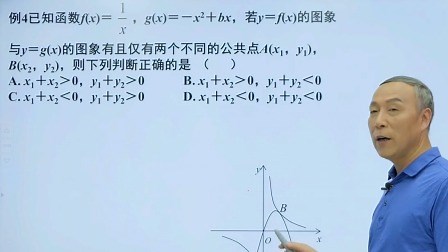 例4已知函数f(x)=1/x，g(x)=－x²＋bx，若y＝f(x)的图象
与y＝g(x)的图象有且仅有两个不同的公共点A(x₁，y₁)，
B(x₂，y₂)，则下列判断正确的是（　　）
A. x₁＋x₂＞0，y₁＋y₂＞0　　B. x₁＋x₂＞0，y₁＋y₂＜0
C. x₁＋x₂＜0，y₁＋y₂＞0　　D. x₁＋x₂＜0，y₁＋y₂＜0
y
B
O x